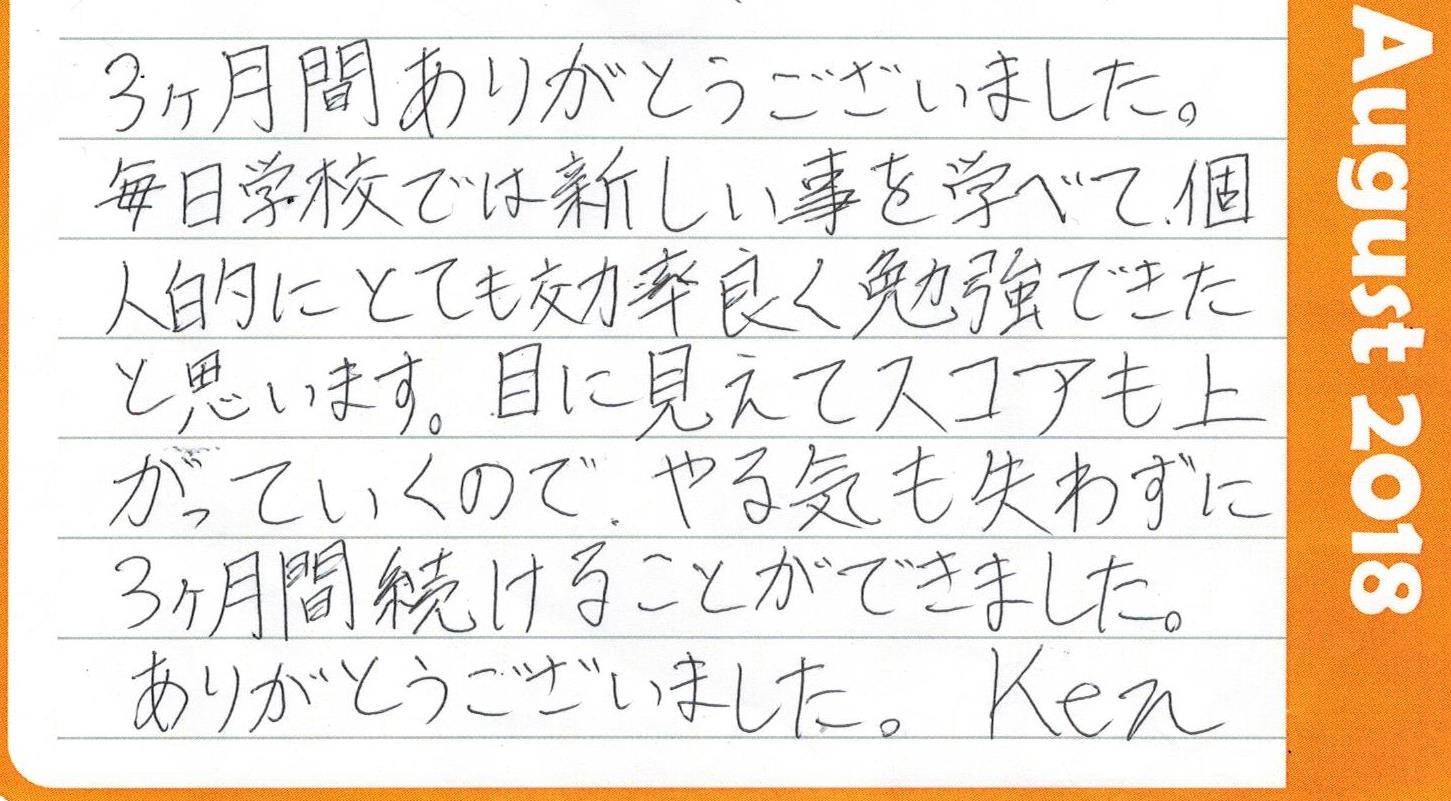 3ヶ月間ありがとうございました。
毎日学校では新しい事を学べて、個
人的にとても効率良く勉強できた
と思います。目に見えてスコアも上
がっていくので、やる気も失わずに
3ヶ月間続けることができました。
ありがとうございました。 Ken
August 2018